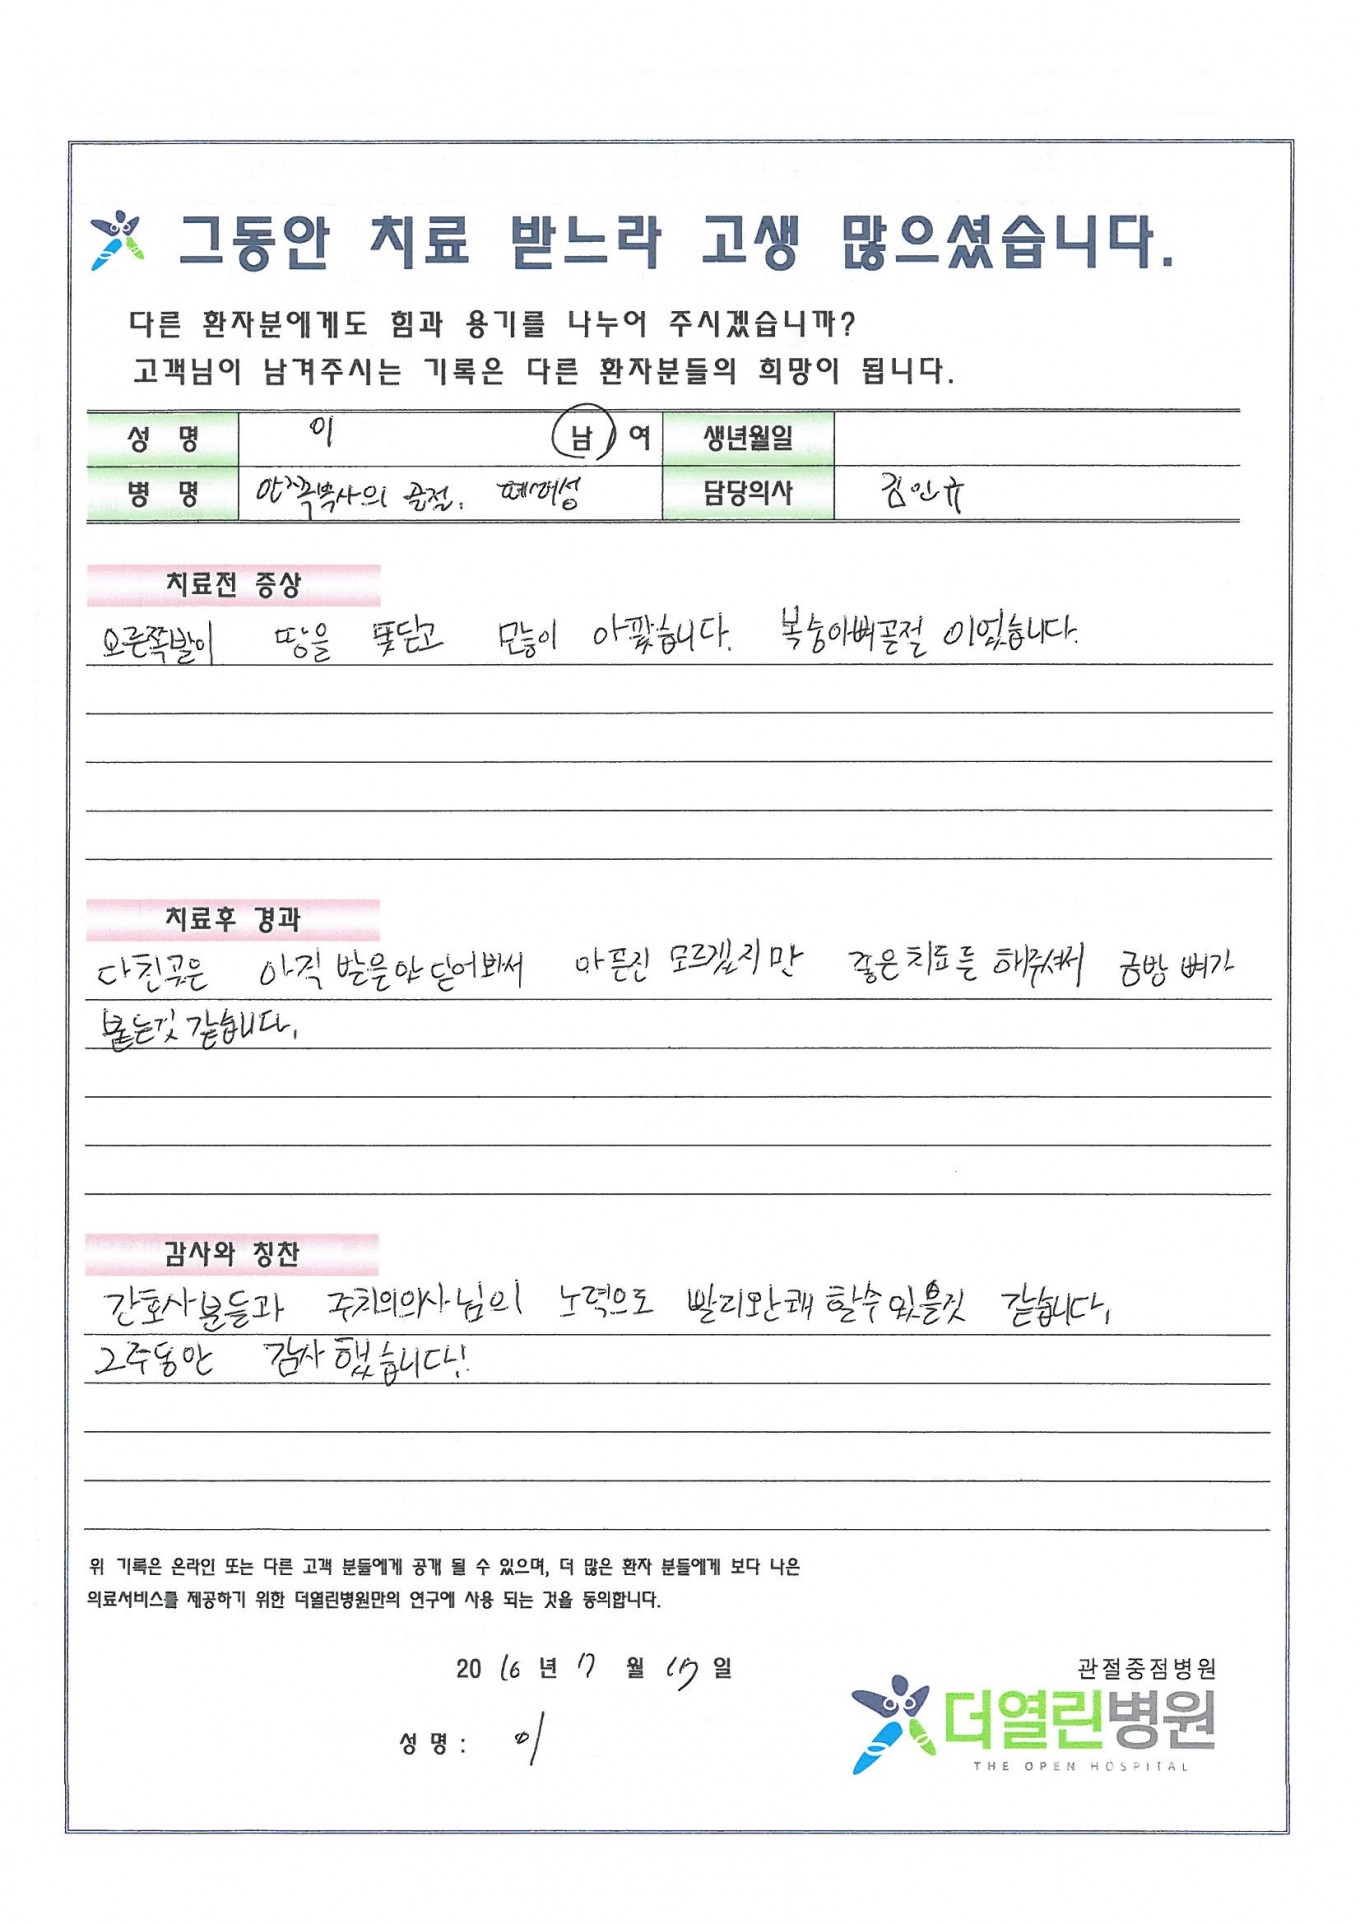 그동안 치료 받느라 고생 많으셨습니다.
다른 환자분에게도 힘과 용기를 나누어 주시겠습니까?
고객님이 남겨주시는 기록은 다른 환자분들의 희망이 됩니다.
성 명 이 남 여 생년월일
병 명 안쪽복사의 골절. 폐쇄성 담당의사 김인규
치료전 증상
오른쪽발이 땅을 못딛고 많이 아팠습니다. 복숭아뼈골절 이었습니다.
치료후 경과
다친곳은 아직 발을안딛어봐서 아픈진 모르겠지만 좋은치료를 해주셔서 금방 뼈가
붙는것 같습니다.
감사와 칭찬
간호사분들과 주치의의사님의 노력으로 빨리완쾌 할수있을것 같습니다.
2주동안 감사했습니다!!
위 기록은 온라인 또는 다른 고객 분들에게 공개 될 수 있으며, 더 많은 환자 분들에게 보다 나은
의료서비스를 제공하기 위한 더열린병원만의 연구에 사용 되는 것을 동의합니다.
2016년 7 월 일
관절중점병원
더열린병원
THE OPEN HOSPITAL
성 명 : 이